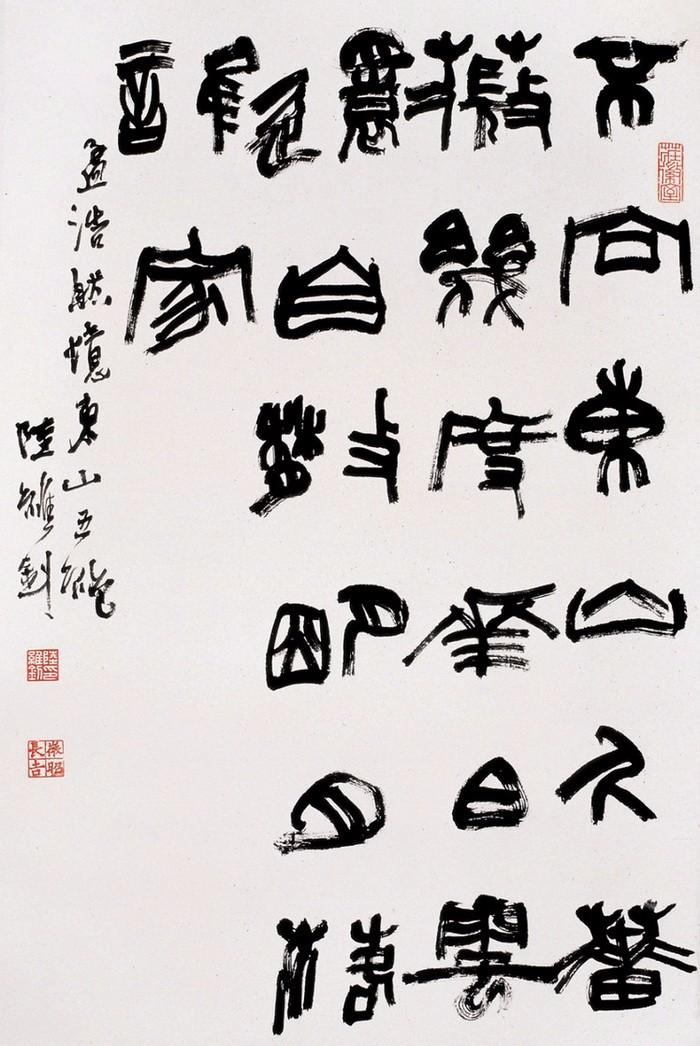 莊徽室
不向東山久薔
薇幾度華白雲
還自散明月落
誰家
孟浩然憶東山五絕
陸維釗
陸印維釗